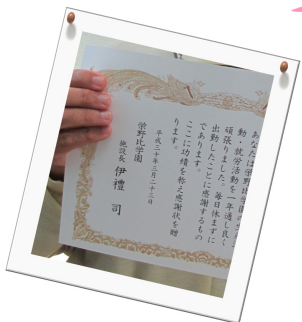 あなたは栄野比学園の
動・就労活動を一年通し良く
頑張りました。毎日休まずに
出勤したことに感謝するもの
であります。
ここに功績を称え感謝状を贈
ります。
平成三十年三月二十三日
栄野比学園
施設長 伊禮 司